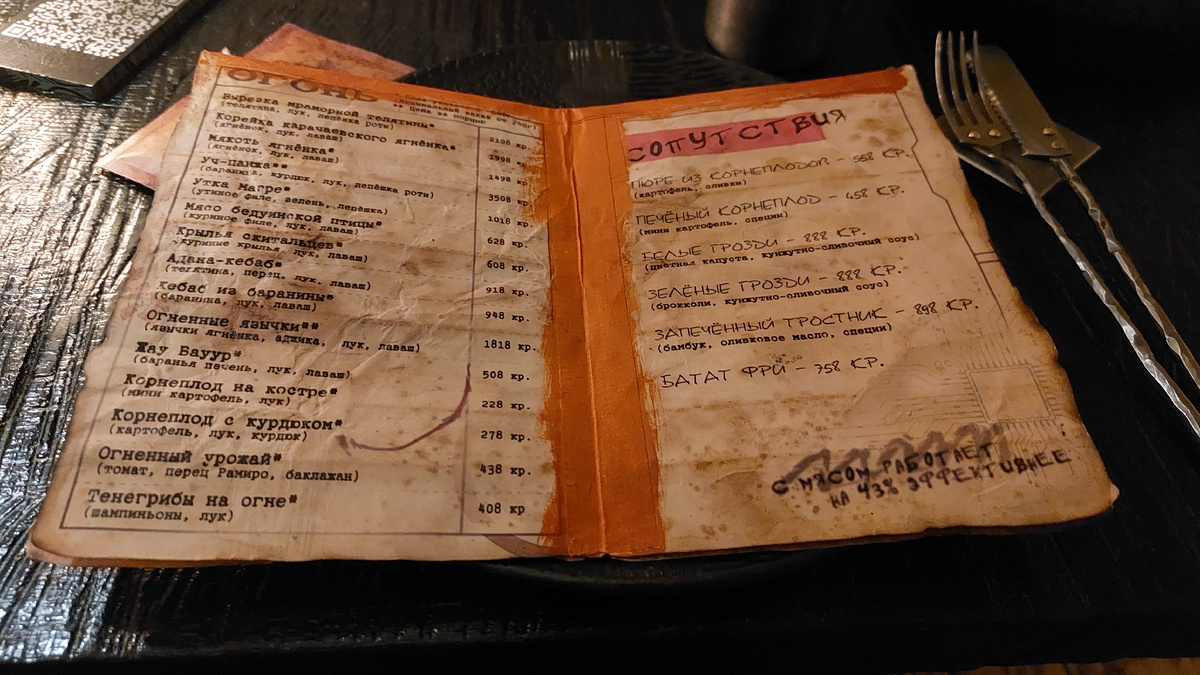 ОГОНЬ
** Цена за порцию
Вырезка мраморной телятины*
(телятина, лук, лепёшка роти)
2108 кр.
Корейка карачаевского ягнёнка*
(ягнёнок, лук, лаваш)
1998 кр.
Мякоть ягнёнка*
(ягнёнок, лук, лаваш)
1498 кр.
Уч-панжа**
(баранина, курдюк, лук, лепёшка роти)
3508 кр.
Утка Магре*
(утиное филе, зелень, лепёшка)
1018 кр.
Мясо бедуинской птицы*
(куриное филе, лук, лаваш)
628 кр.
Крылья скитальцев*
(куриные крылья, лук, лаваш)
608 кр.
Адана-кебаб*
(телятина, перец, лук, лаваш)
918 кр.
Кебаб из баранины*
(баранина, лук, лаваш)
948 кр.
Огненные язычки**
(язычки ягнёнка, аджика, лук, лаваш)
1818 кр.
Жау Бауур*
(баранья печень, лук, лаваш)
508 кр.
Корнеплод на костре*
(мини картофель, лук)
228 кр.
Корнеплод с курдюком*
(картофель, лук, курдюк)
278 кр.
Огненный урожай*
(томат, перец Рамиро, баклажан)
438 кр.
Тенегрибы на огне*
(шампиньоны, лук)
408 кр
СОПУТСТВИЯ
ПЮРЕ ИЗ КОРНЕПЛОДОВ - 558 КР.
(картофель, сливки)
ПЕЧЁНЫЙ КОРНЕПЛОД - 458 КР.
(мини картофель, специи)
БЕЛЫЕ ГРОЗДИ - 888 КР.
(цветная капуста, кунжутно-сливочный соус)
ЗЕЛЁНЫЕ ГРОЗДИ - 888 КР.
(брокколи, кунжутно-сливочный соус)
ЗАПЕЧЁННЫЙ ТРОСТНИК - 898 КР.
(бамбук, оливковое масло, специи)
БАТАТ ФРИ - 758 КР.
С МЯСОМ РАБОТАЕТ
НА 43% ЭФФЕКТИВНЕЕ